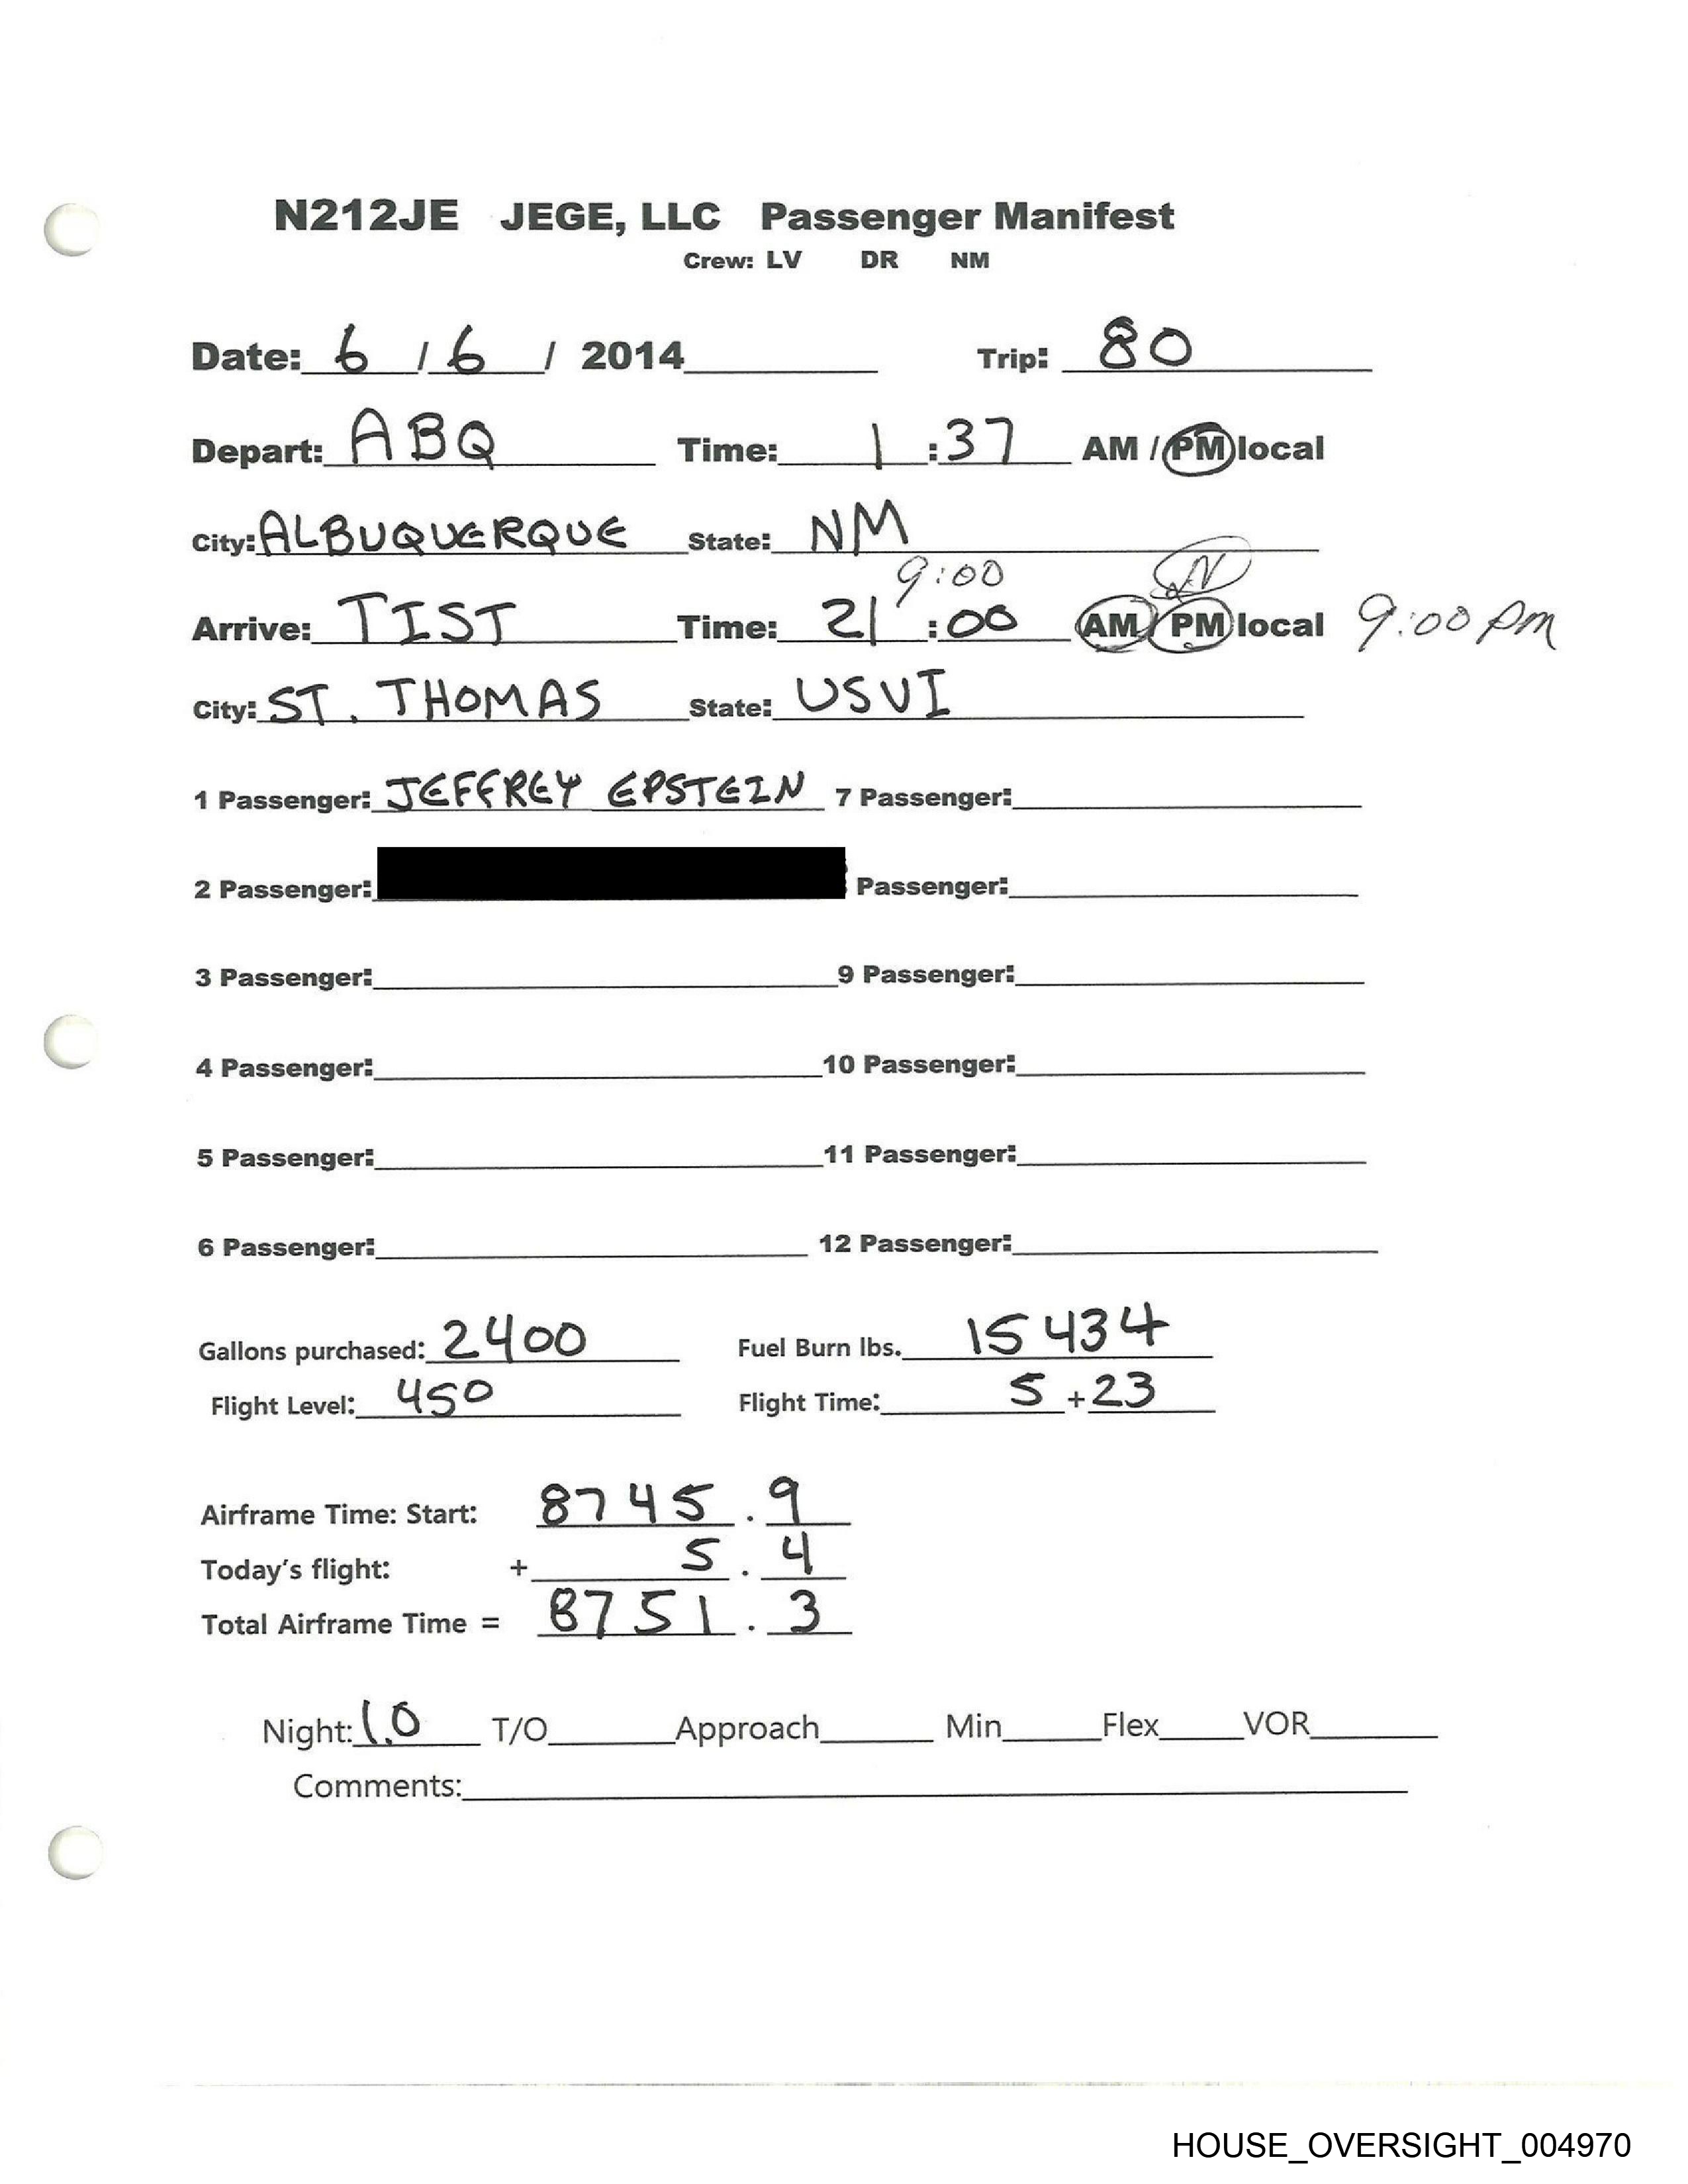 N212JE JEGE, LLC Passenger Manifest
Crew: LV DR NM
Date: 6 / 6 / 2014 Trip: 80
Depart: ABQ Time: 1 :37 AM / PM local
City: ALBUQUERQUE State: NM
9:00
Arrive: TIST Time: 21 :00 AM / PM local 9:00 PM
City: ST. THOMAS State: USVI
1 Passenger: JEFFREY EPSTEIN 7 Passenger:
2 Passenger: Passenger:
3 Passenger: 9 Passenger:
4 Passenger: 10 Passenger:
5 Passenger: 11 Passenger:
6 Passenger: 12 Passenger:
Gallons purchased: 2400 Fuel Burn lbs. 15434
Flight Level: 450 Flight Time: 5 +23
Airframe Time: Start: 8745 . 9
Today's flight: + 5 . 4
Total Airframe Time = 8751 . 3
Night: 1.0 T/O Approach Min Flex VOR
Comments:
HOUSE_OVERSIGHT_004970